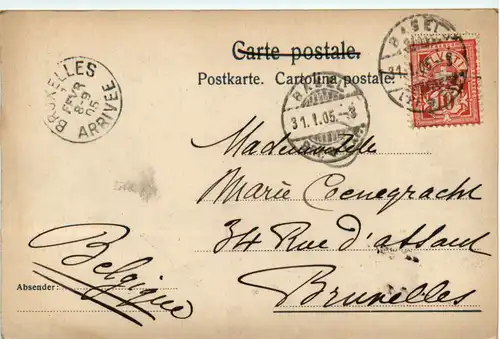 Carte postale.
Postkarte. Cartolina postale.
BRUXELLES
1 FEVR
8-9
05
ARRIVÉE
BASEL
31.1.05.–8
BASEL
31.1.05
10
Mademoiselle
Marie
34 Rue d'
Bruxelles
Belgique
Absender: